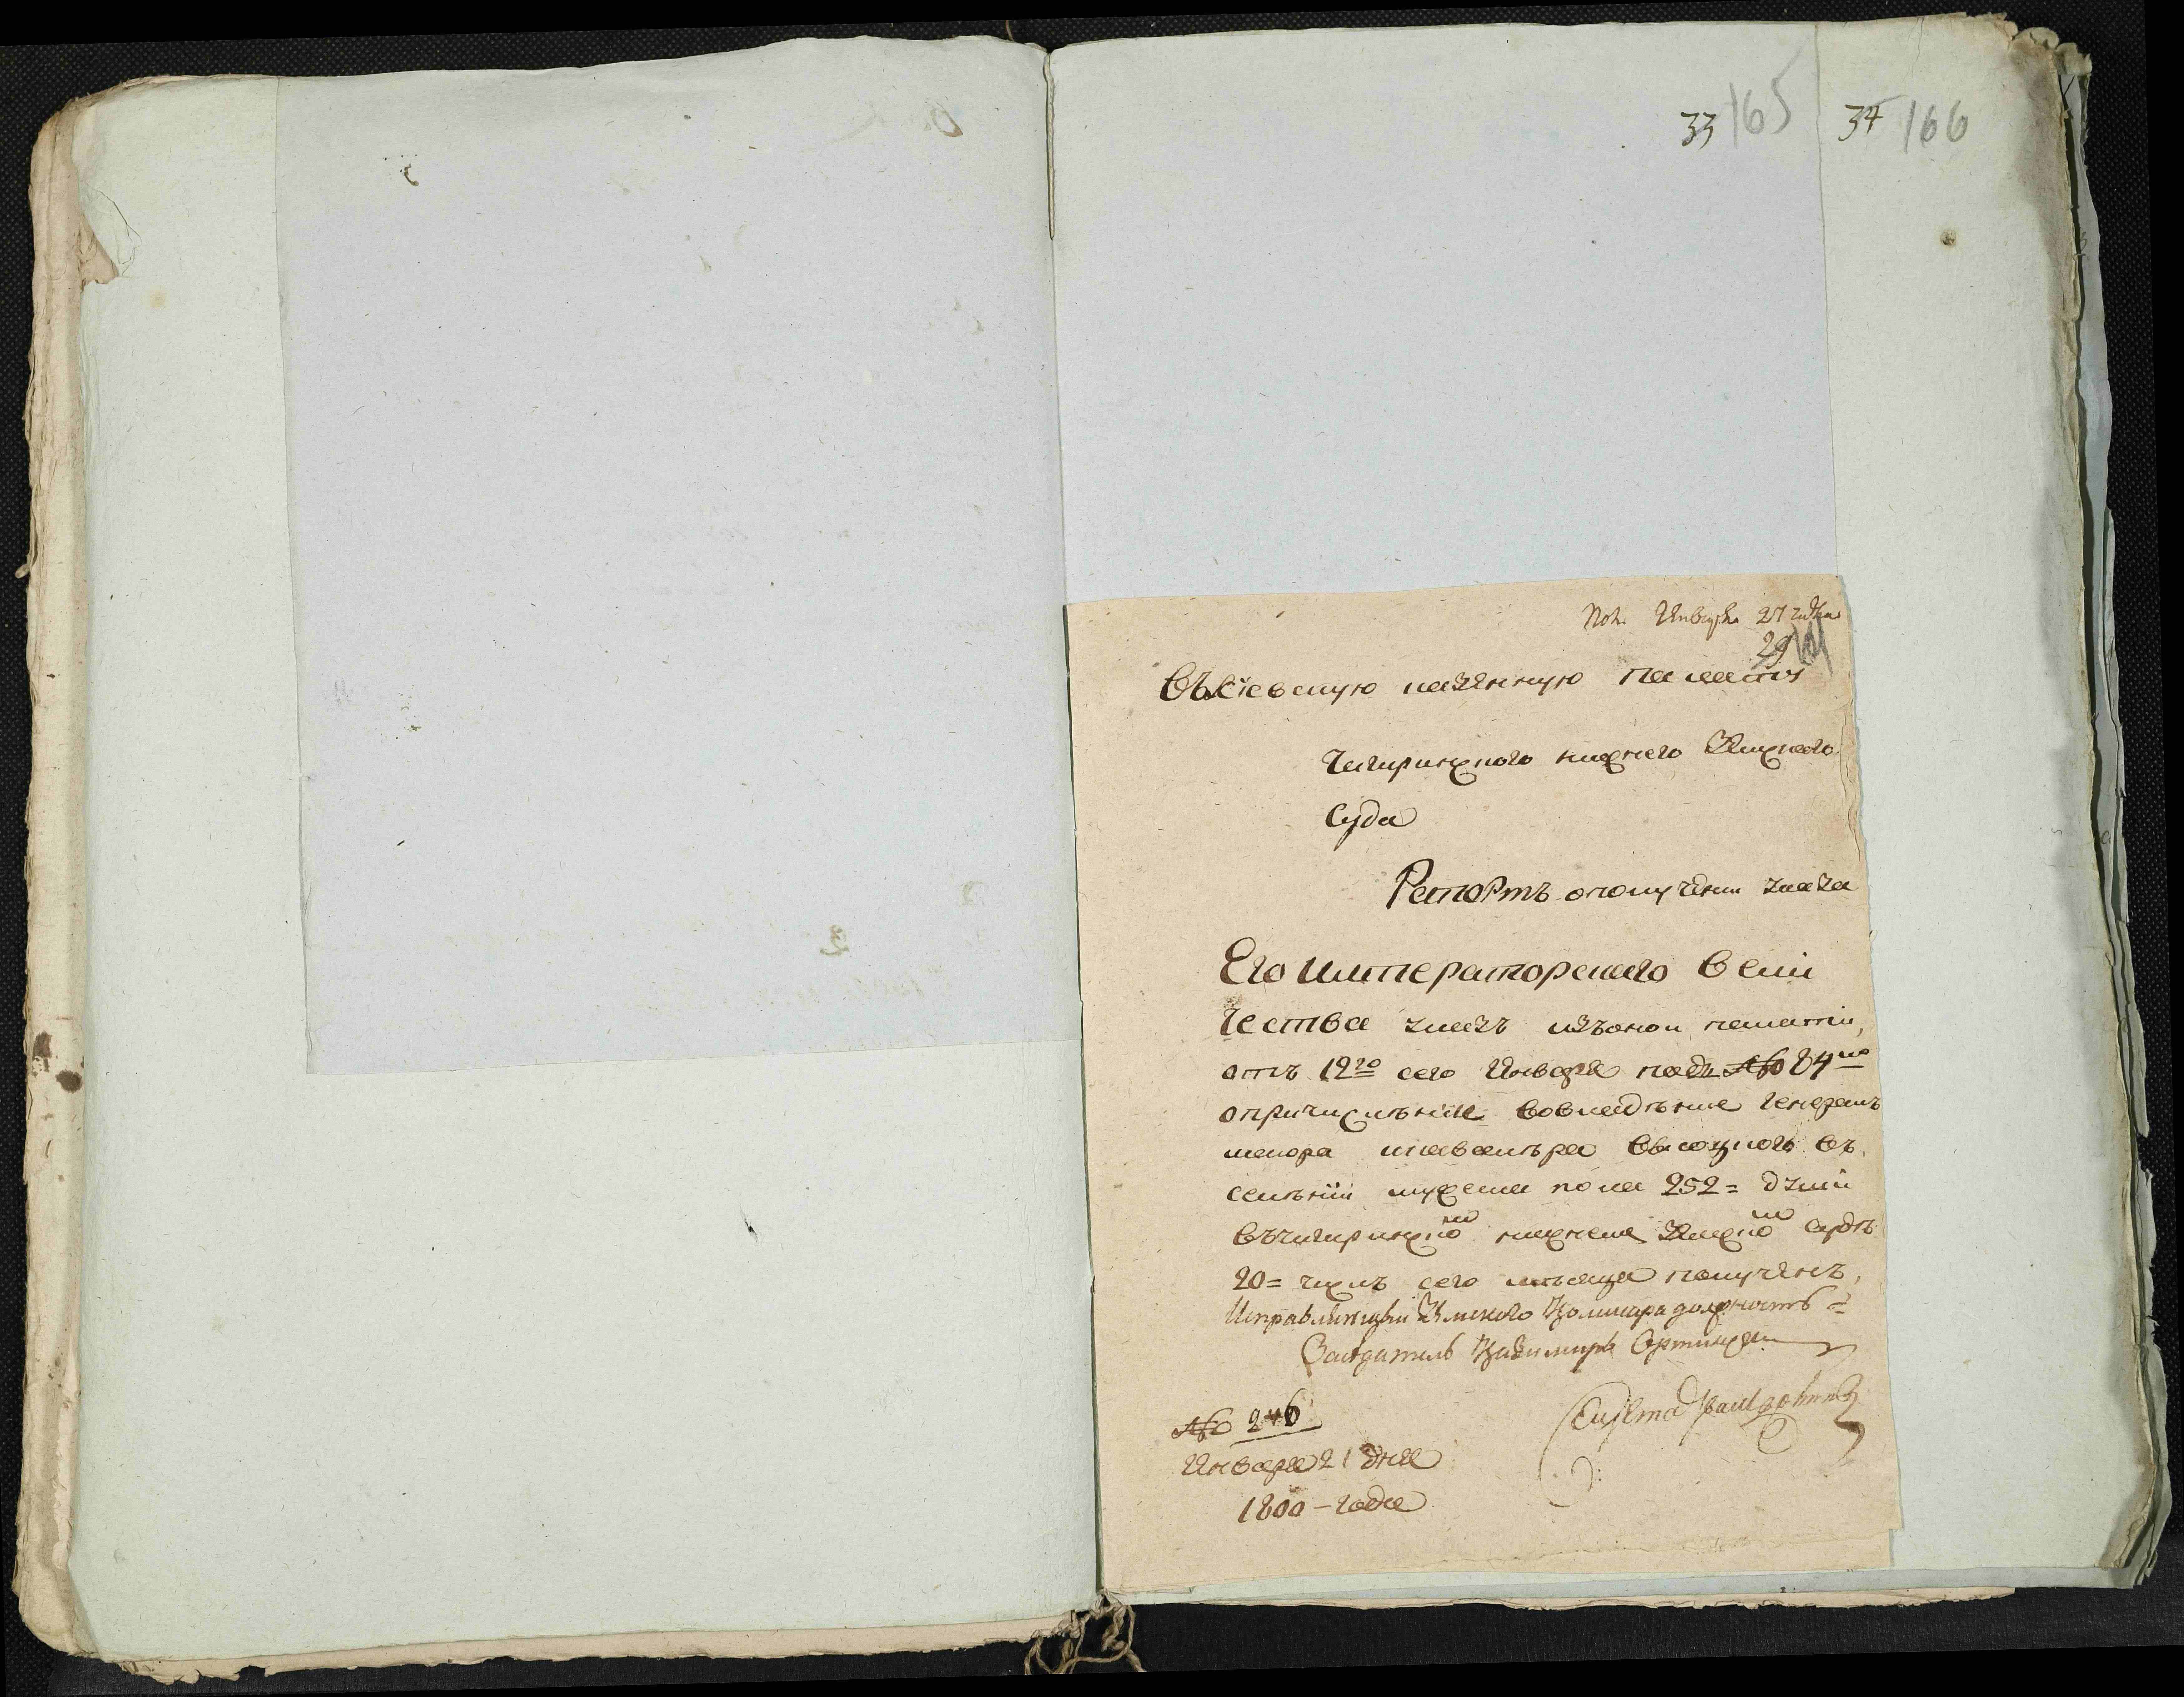 33 165 34 166
Января 27 дня
29
Въ Кіевскую казенную палату
Чигиринского нижнего Земского
Суда
Репортъ о получении указа
Его Императорского Вели
чества указъ изъ оной палати,
отъ 12го сего Января подъ № 84мъ
о причисленіи во владение генералъ
маіора и кавалера Высоцкого въ
селении пола 252= душъ
въ Чигиринско нижнемъ Земско суде
20= числъ сего месяца полученъ,
Исправляющий Земского Комисара должность=
Заседатель Казимиръ
№ 246
Января 21 дня
1800 - года